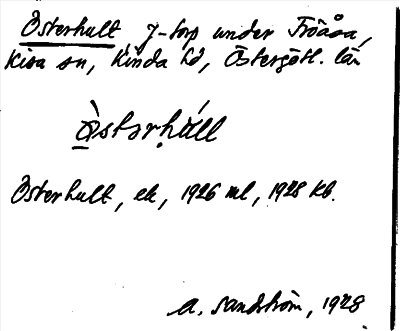 Österhult f-torp under Fröåsa,
Kisa sn, Kinda hd, Östergötl. län
Òstərhúll
Österhult, ek, 1926 ml, 1928 kb.
A. Sandström, 1928